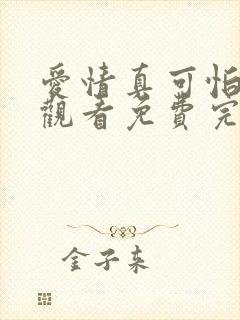 愛情真可怕
觀看免費完
金子来